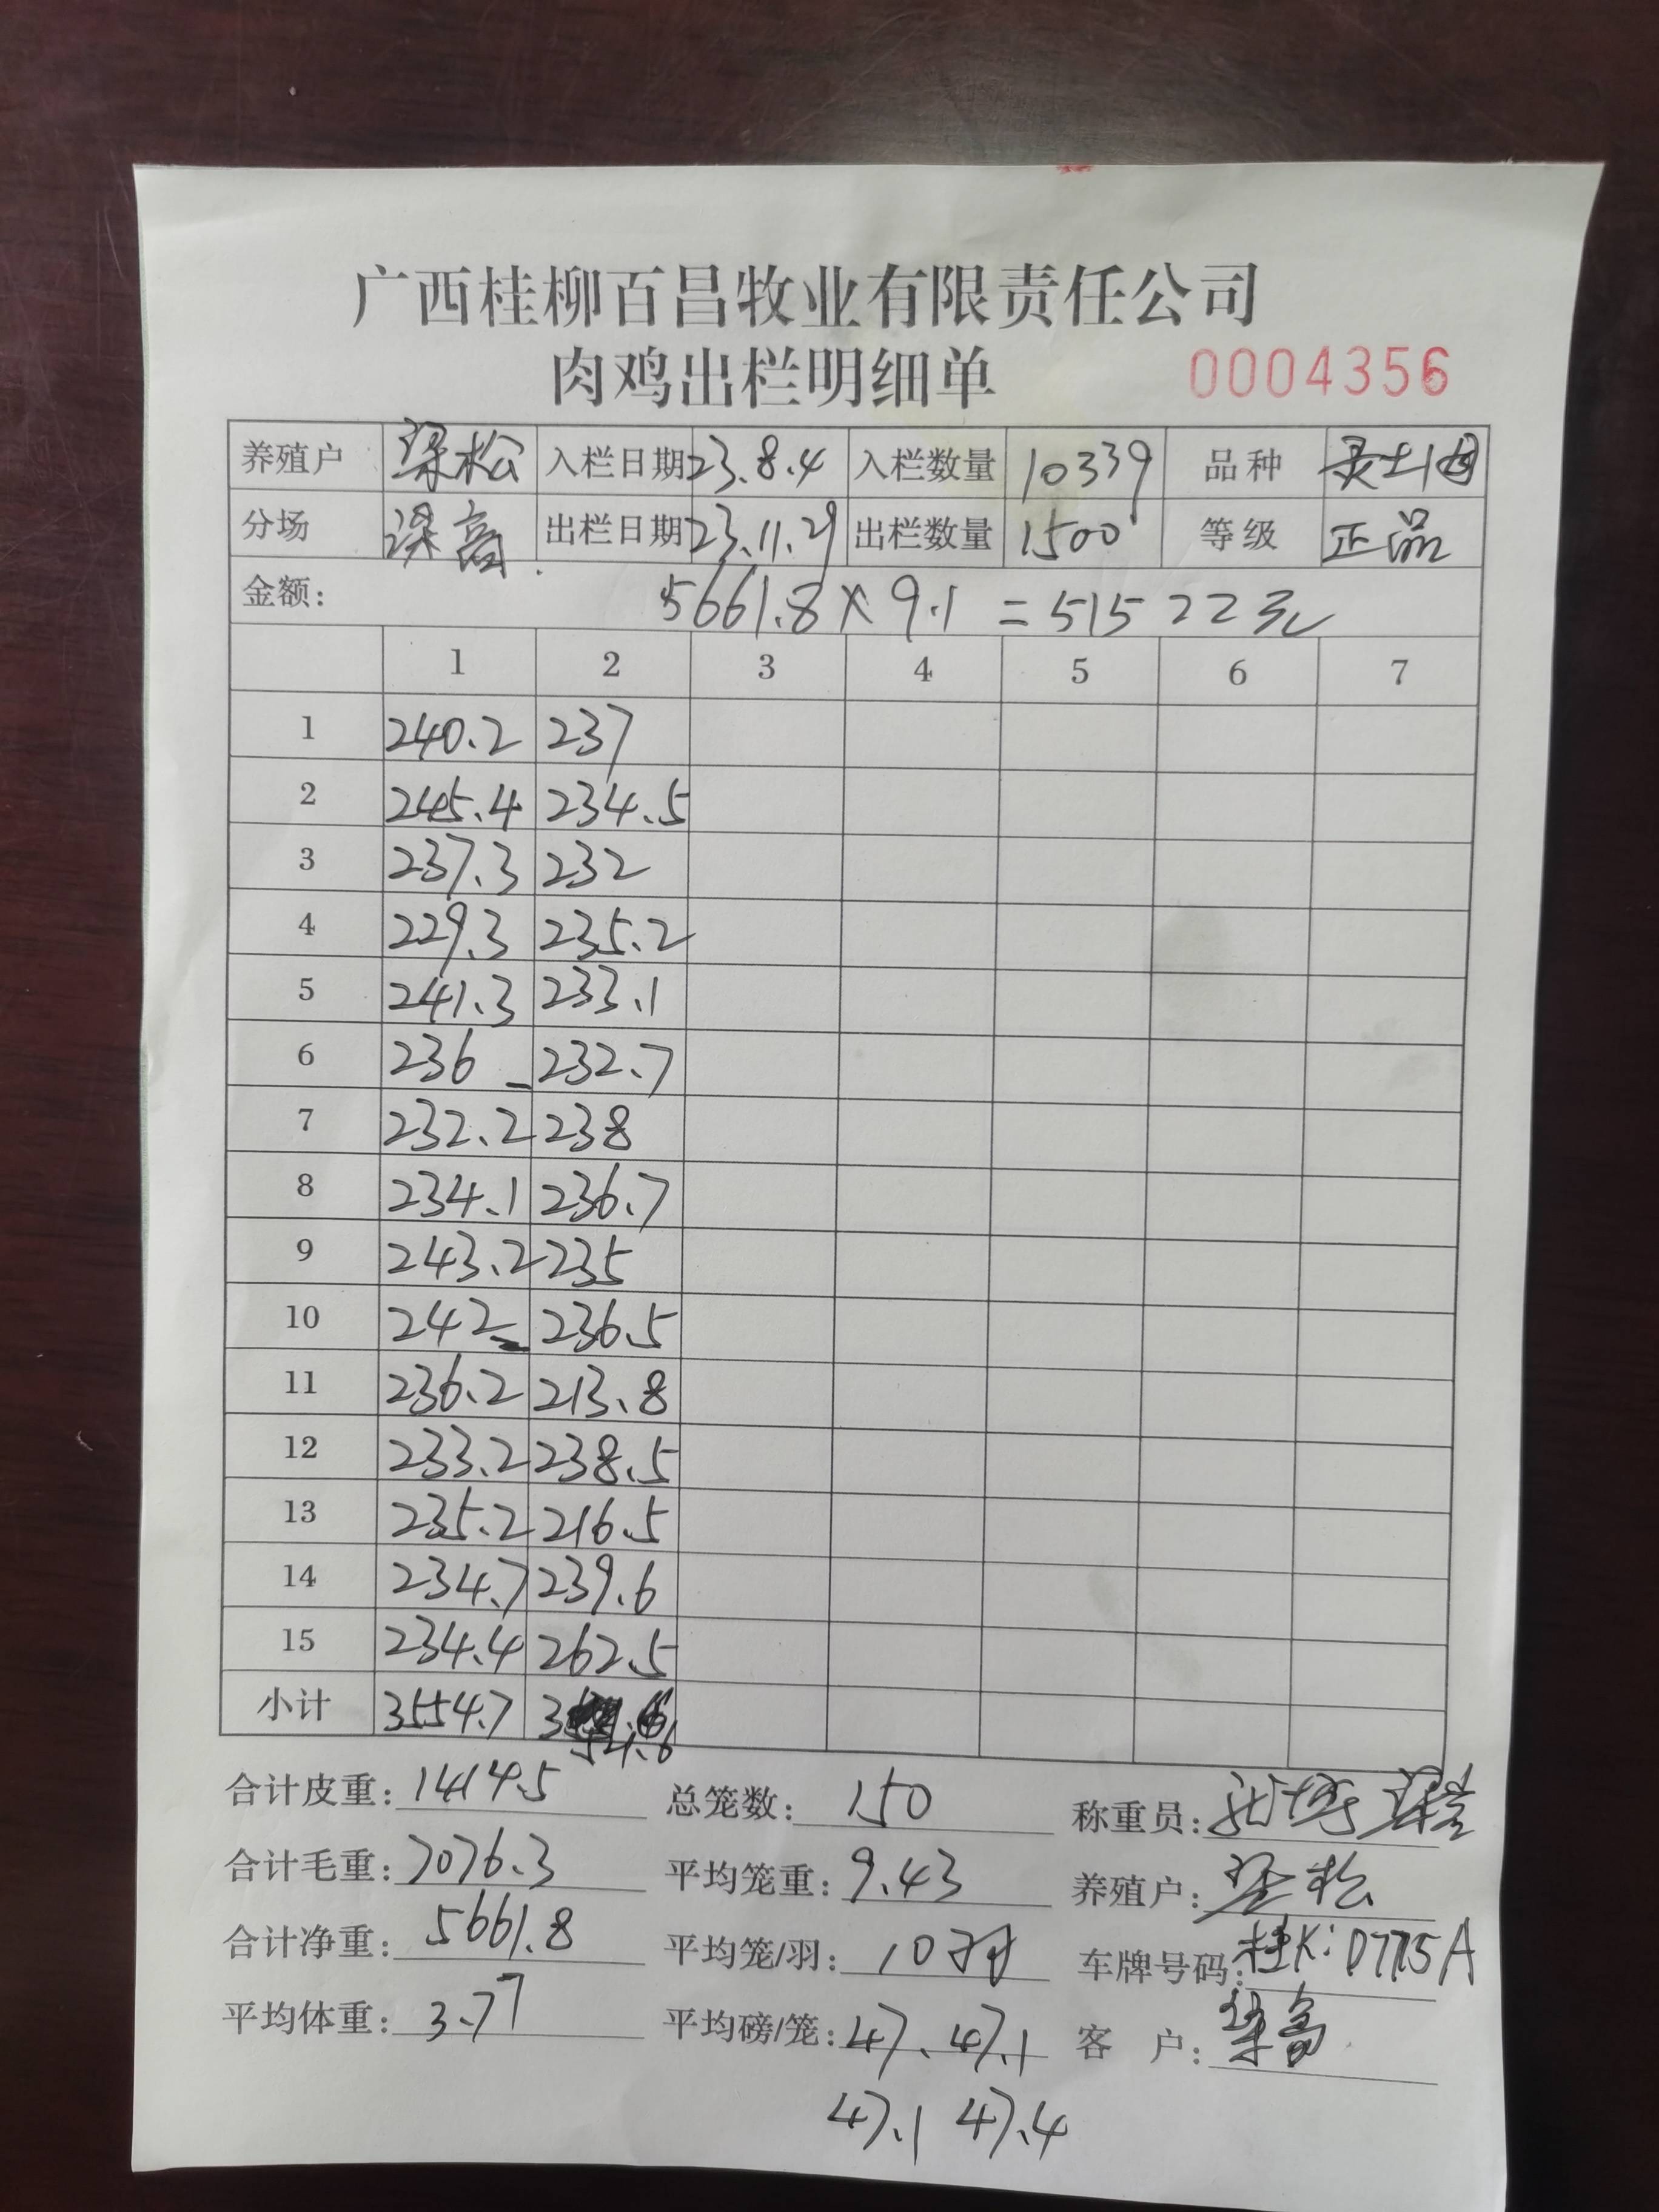 广西桂柳百昌牧业有限责任公司
肉鸡出栏明细单 0004356
养殖户 梁松 入栏日期 23.8.4 入栏数量 10339 品种
分场 出栏日期 23.11.29 出栏数量 1500 等级 正品
金额: 5661.8×9.1=51522元
1 2 3 4 5 6 7
1 240.2 237
2 245.4 234.5
3 237.3 232
4 229.3 235.2
5 241.3 233.1
6 236 232.7
7 232.2 238
8 234.1 236.7
9 243.2 235
10 242 236.5
11 236.2 213.8
12 233.2 238.5
13 235.2 216.5
14 234.7 239.6
15 234.4 262.5
小计 3554.7 3521.6
合计皮重: 1414.5 总笼数: 150 称重员:
合计毛重: 7076.3 平均笼重: 9.43 养殖户: 梁松
合计净重: 5661.8 平均笼/羽: 10羽 车牌号码: 桂K:D7715A
平均体重: 3.77 平均磅/笼: 47、47.1 客 户:
47.1 47.4